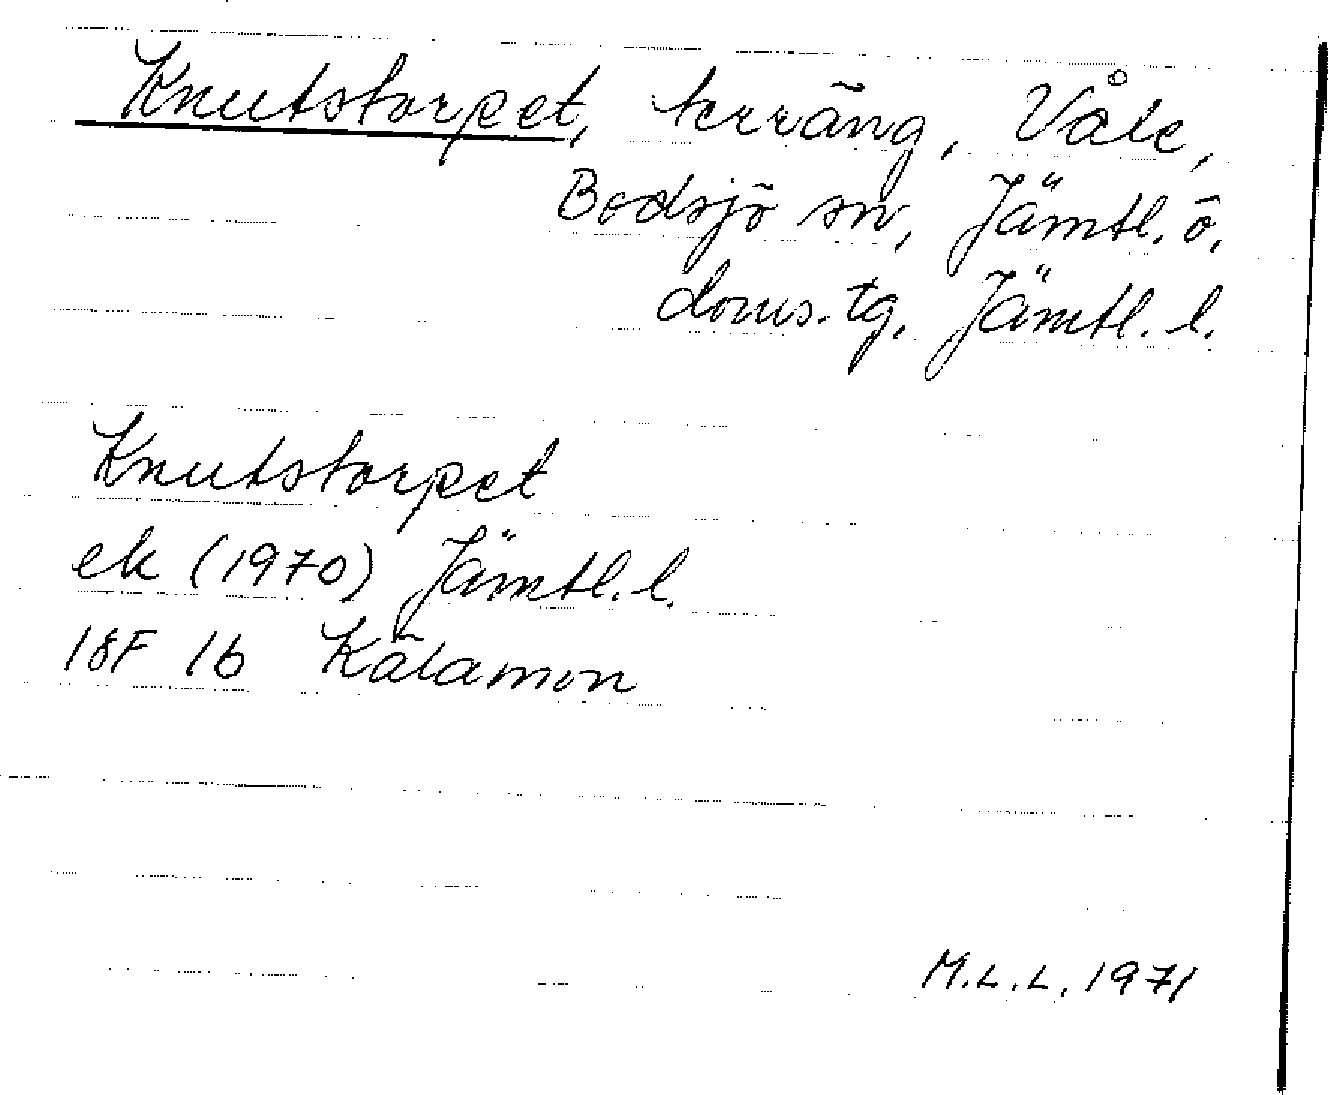 Knutstorpet, terräng, Våle,
Bodsjö sn, Jämtl. ö.
doms. tg, Jämtl. l.
Knutstorpet
ek (1970) Jämtl. l.
18F 1b Kälamon
M.L.L. 1971